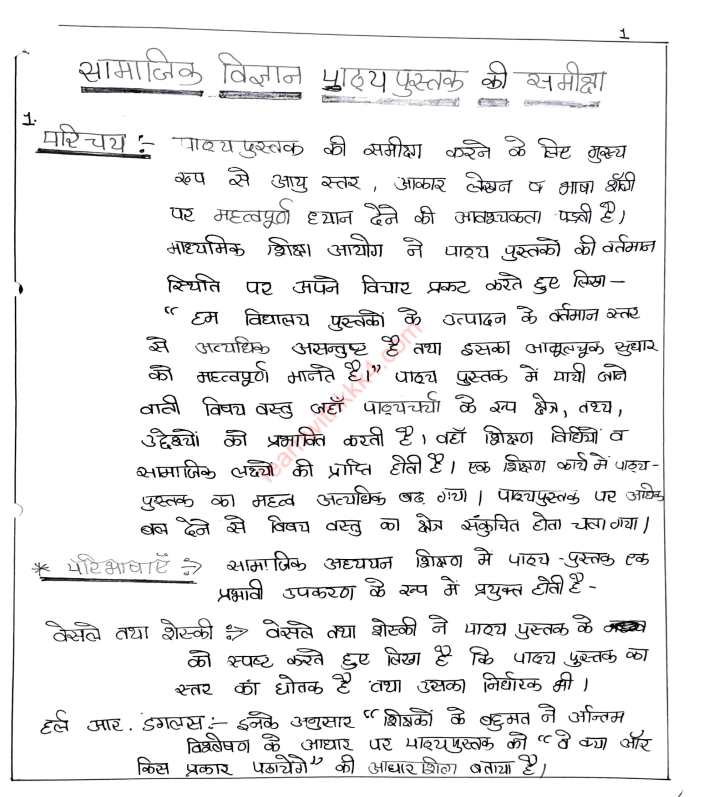 1
सामाजिक विज्ञान पाठ्यपुस्तक की समीक्षा
1.
परिचय :- पाठ्यपुस्तक की समीक्षा करने के लिए मुख्य
रूप से आयु स्तर, आकार लेखन व भाषा शैली
पर महत्वपूर्ण ध्यान देने की आवश्यकता पडती है।
माध्यमिक शिक्षा आयोग ने पाठ्य पुस्तको की वर्तमान
स्थिति पर अपने विचार प्रकट करते हुए लिखा —
“ हम विद्यालय पुस्तकों के उत्पादन के वर्तमान स्तर
से अत्यधिक असन्तुष्ट है तथा इसका आमूलचूक सुधार
को महत्वपूर्ण मानते है।” पाठ्य पुस्तक में पायी जाने
वाली विषय वस्तु जहाँ पाठ्यचर्या के रूप क्षेत्र, तथ्य,
उद्देश्यों को प्रभावित करती है। वहाँ शिक्षण विधियों व
सामाजिक लक्ष्यों की प्राप्ति होती है। एक शिक्षण कार्य में पाठ्य-
पुस्तक का महत्व अत्यधिक बढ़ गया। पाठ्यपुस्तक पर अधिक
बल देने से विषय वस्तु का क्षेत्र संकुचित होता चला गया।
* परिभाषाएँ :> सामाजिक अध्ययन शिक्षण में पाठ्य-पुस्तक एक
प्रभावी उपकरण के रूप में प्रयुक्त होती है -
वेसले तथा रोस्की :> वेसले तथा शेस्की ने पाठ्य पुस्तक के
को स्पष्ट करते हुए लिखा है कि पाठ्य पुस्तक का
स्तर का धोतक है तथा उसका निर्धारक भी।
हर्ल आर. डगलस :- इनके अनुसार “शिक्षकों के बहुमत ने अन्तिम
विश्लेषण के आधार पर पाठ्यपुस्तक को “वे क्या और
किस प्रकार पढायेगे” की आधारशिला बताया है।
learnwithkkk4.com